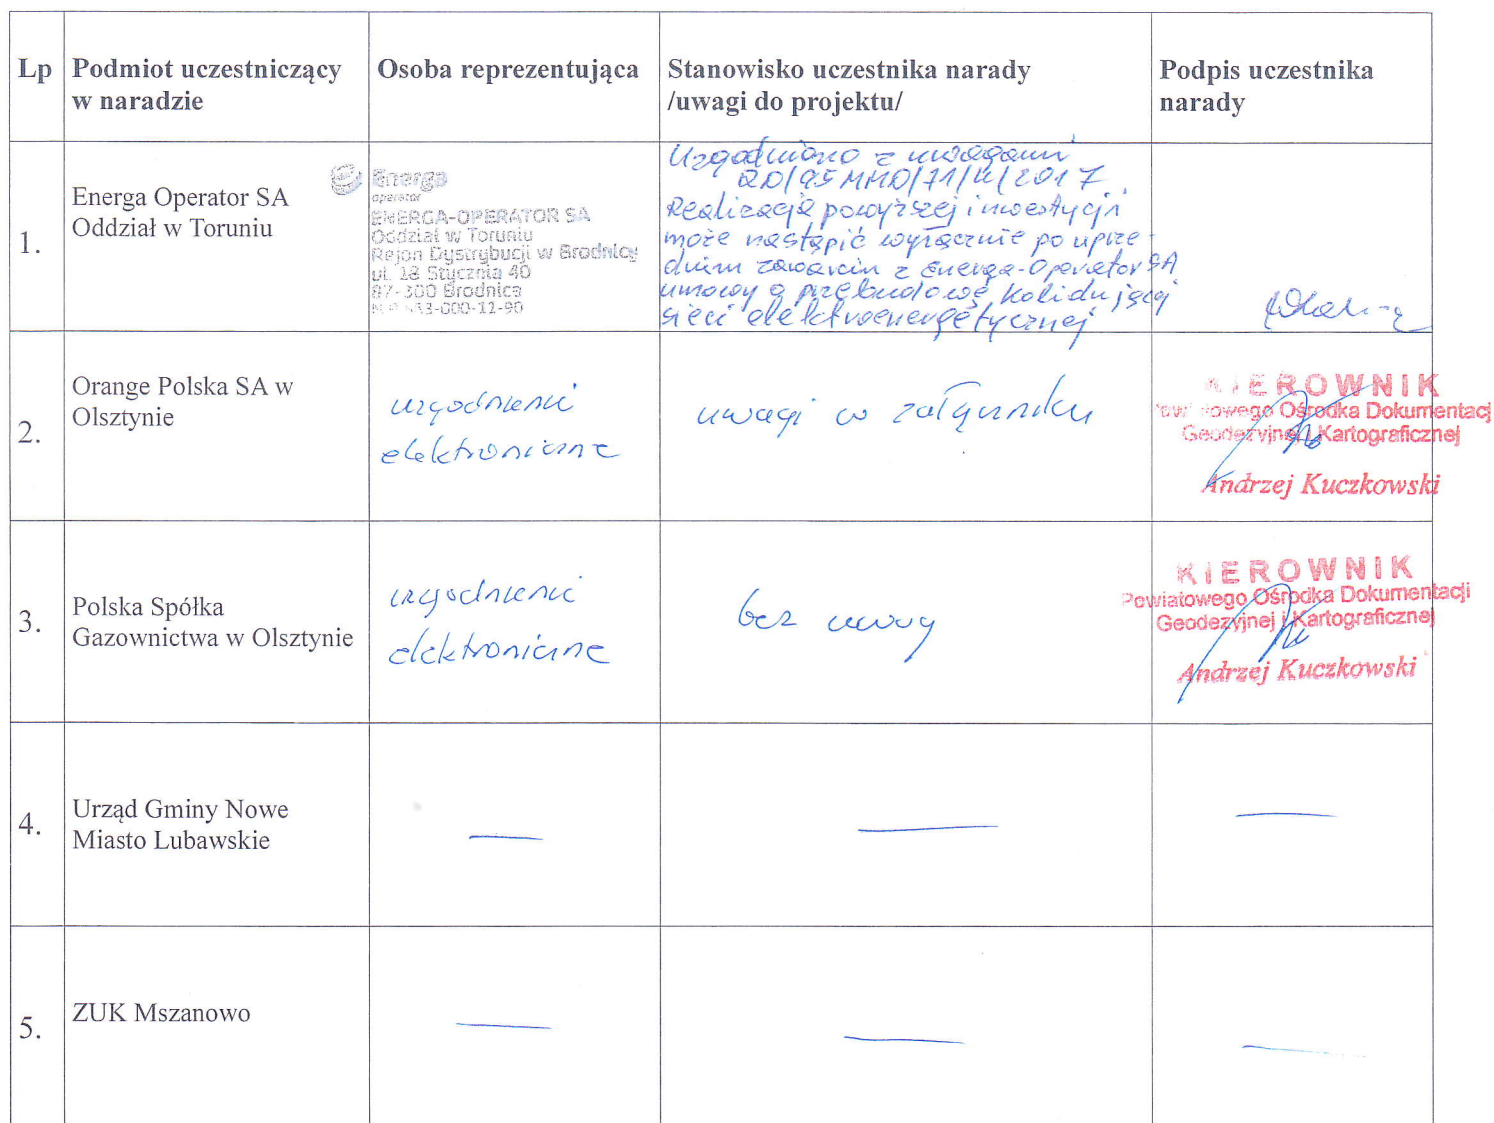 Lp
Podmiot uczestniczący
w naradzie
Osoba reprezentująca
Stanowisko uczestnika narady
/uwagi do projektu/
Podpis uczestnika
narady
1.
Energa Operator SA
Oddział w Toruniu
Energa
operator
ENERGA-OPERATOR SA
Oddział w Toruniu
Rejon Dystrybucji w Brodnicy
ul. 18 Stycznia 40
87-300 Brodnica
Uzgodniono z uwagami
Realizacja powyższej inwestycji
może nastąpić wyłącznie po uprze-
dnim zawarciu z Energa-Operator SA
umowy o przebudowę kolidującej
sieci elektroenergetycznej
2.
Orange Polska SA w
Olsztynie
uzgodnienie
elektroniczne
uwagi w załączniku
KIEROWNIK
Powiatowego Ośrodka Dokumentacj
Geodezyjnej i Kartograficznej
Andrzej Kuczkowski
3.
Polska Spółka
Gazownictwa w Olsztynie
uzgodnienie
elektroniczne
bez uwag
KIEROWNIK
Powiatowego Ośrodka Dokumentacji
Geodezyjnej i Kartograficznej
Andrzej Kuczkowski
4.
Urząd Gminy Nowe
Miasto Lubawskie
5.
ZUK Mszanowo